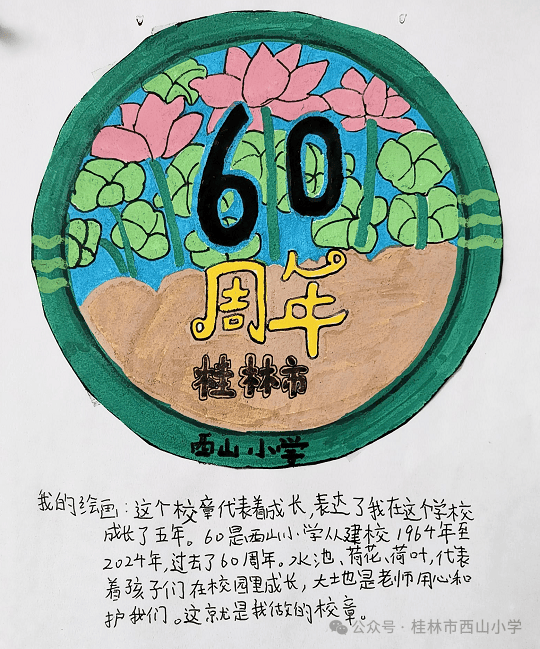 60
周年
桂林市
西山小学
我的绘画：这个校章代表着成长，表达了我在这个学校
成长了五年。60是西山小学从建校1964年至
2024年，过去了60周年。水池、荷花、荷叶，代表
着孩子们在校园里成长，大土也是老师用心和
护我们。这就是我做的校章。
公众号·桂林市西山小学